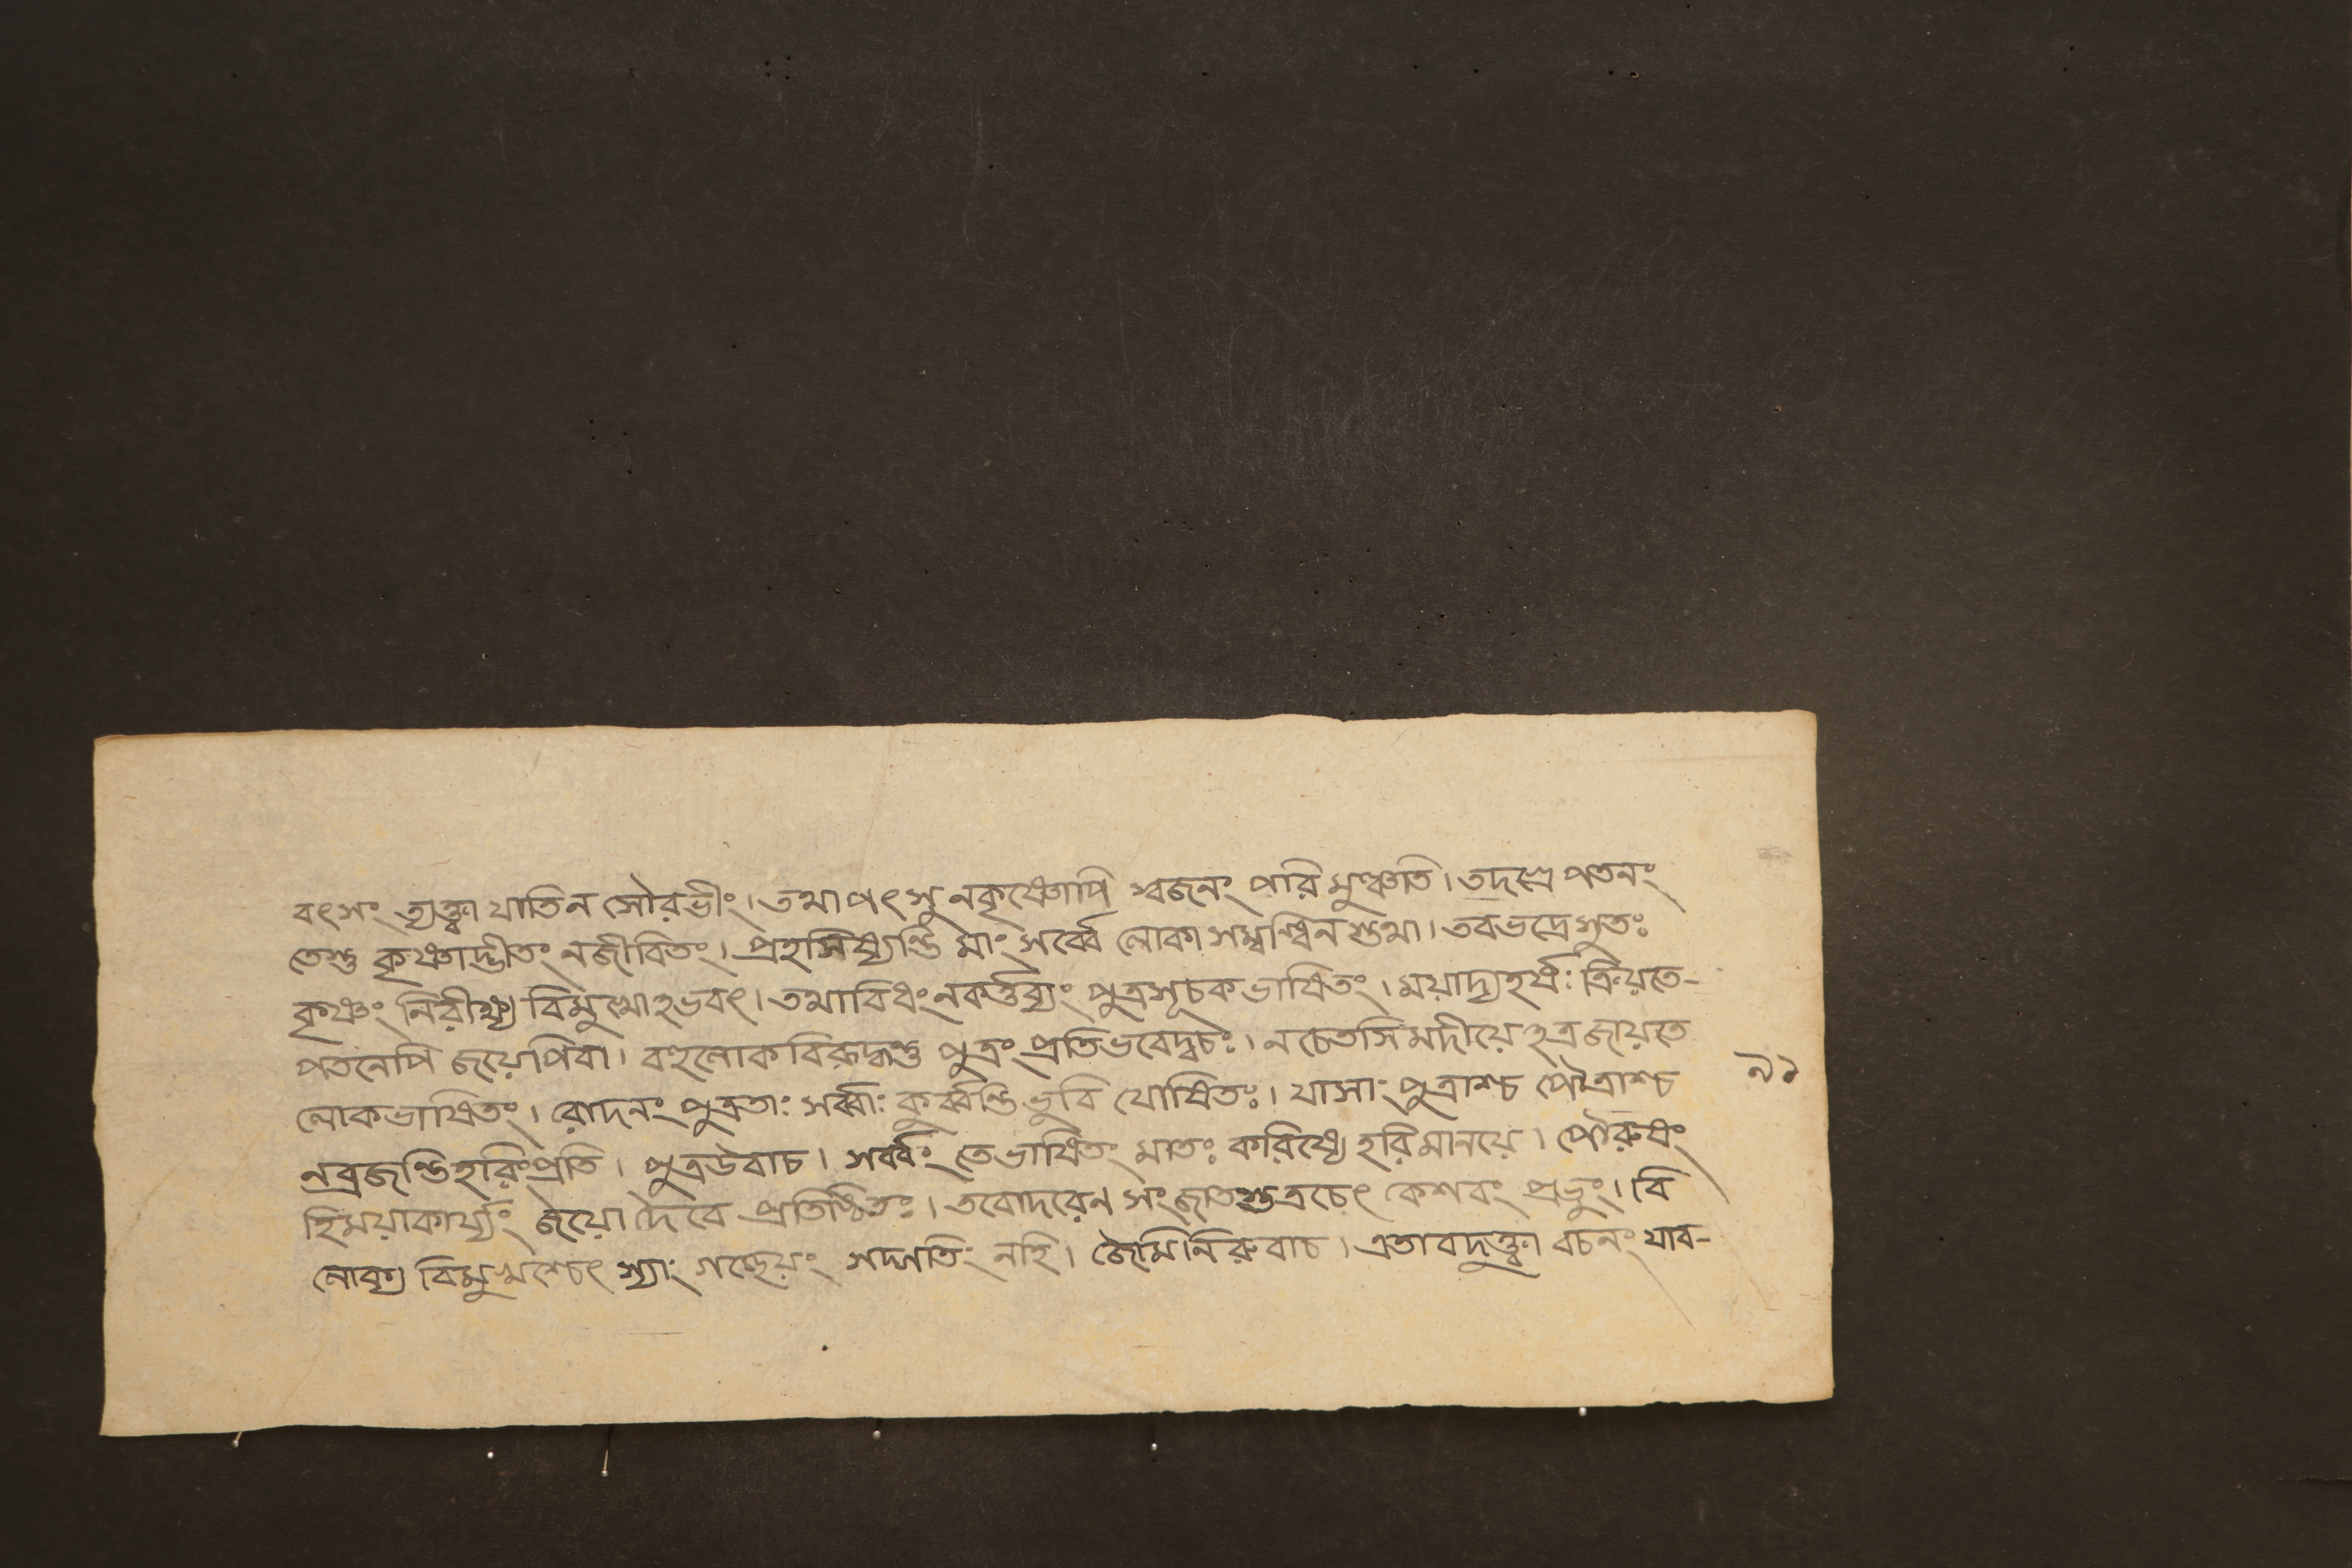 বৎসং ত্যক্ত্বা যাতি ন সৌরভীং। তথাপৎসু ন কৃষ্ণোপি স্বজনং পরিমুঞ্চতি। তদগ্রে পতনং
তেস্তু কৃষ্ণাদ্ভীতং ন জীবিতং। প্রহসিষ্যন্তি মাং সর্ব্বে লোকা সম্বন্ধিনস্তথা। তব ভদ্রে সুতঃ
কৃষ্ণং নিরীক্ষ্য বিমুখোঽভবৎ। তথাবিধং ন কর্ত্তব্যং পুত্র সূচকভাষিতং। ময়াদ্য হর্ষঃ ক্রিয়তে-
পতনেপি জয়েপি বা। বহুলোকবিরুদ্ধস্তু পুত্রং প্রতি ভবেদ্বচঃ। ন চেতসি মদীয়েঽত্র জায়তে
লোকভাষিতং। রোদনং পুত্রতাঃ সর্ব্বাঃ কুর্ব্বন্তি ভুবি যোষিতঃ। যাসাং পুত্রাশ্চ পৌত্রাশ্চ
৯১
ন ব্রজন্তি হরিং প্রতি। পুত্র উবাচ। সর্ব্বং তে ভাষিতং মাতঃ করিষ্যে হরিমানয়ে। পৌরুষং
হি ময়া কার্য্যং জয়ো দৈবে প্রতিষ্ঠিতঃ। তবোদরেন সংজাতস্তত্র চেৎ কেশবং প্রভুং। বি
লোক্য বিমুখশ্চেৎ স্যাং গচ্ছেয়ং সদ্গতিং নহি। জৈমিনিরুবাচ। এতাবদুক্ত্বা বচনং যাব-